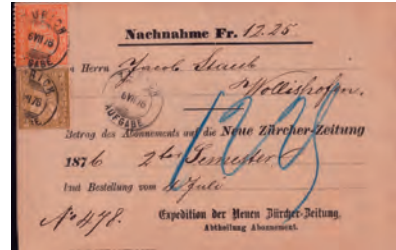 Nachnahme Fr. 12.25.
Herrn Jacob Staub
Wollishofen
Betrag des Abonnements auf die Neue Zürcher-Zeitung
1876 2tes Semester
laut Bestellung vom Juli
No 478.
Expedition der Neuen Zürcher-Zeitung,
Abtheilung Abonnement.
6 VII 76
AUFGABE